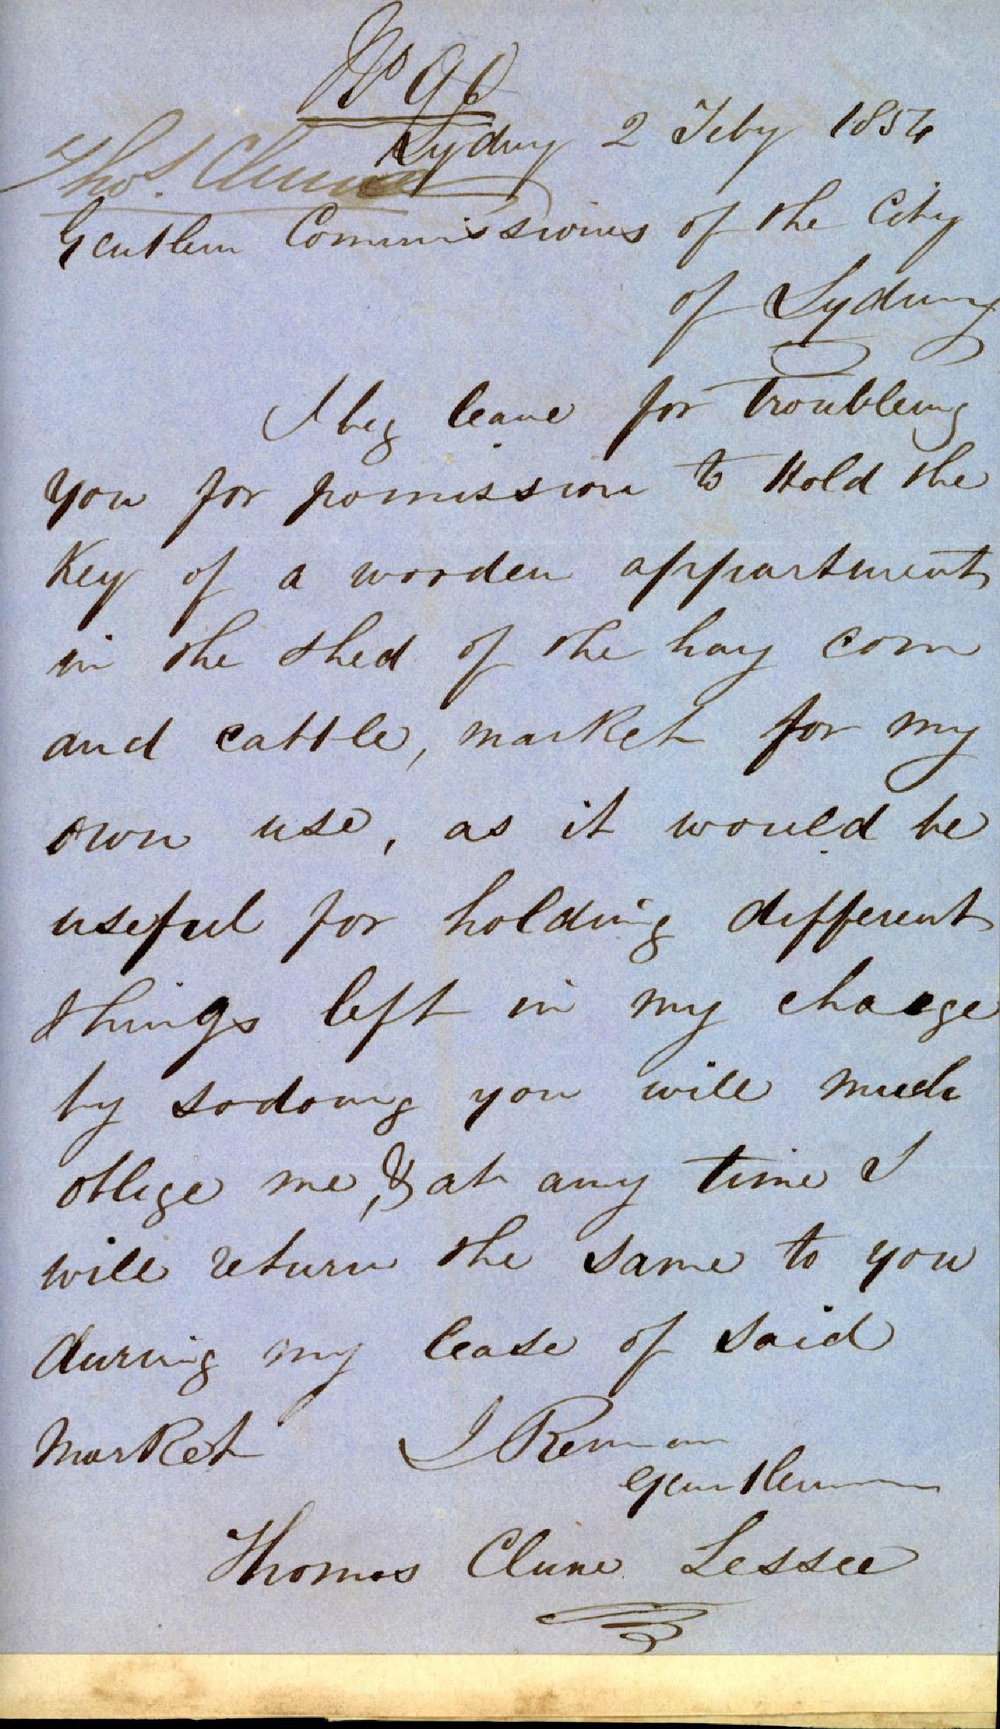 No 96
Sydny 2 Feby 1854
Thos. Clune
Gentlem Commissioins of the City
of Sydney
I beg leave for troubleing
you for pormission to Hold the
Key of a wooden appartment
in the shed of the hay corn
and cattle, market for my
own use, as it would be
useful for holding different
things left in my charge
by sodoing you will much
oblige me, & at any time I
will return the same to you
during my lease of said
market I Remain
Gentlemen
Thomas Clune Lessee